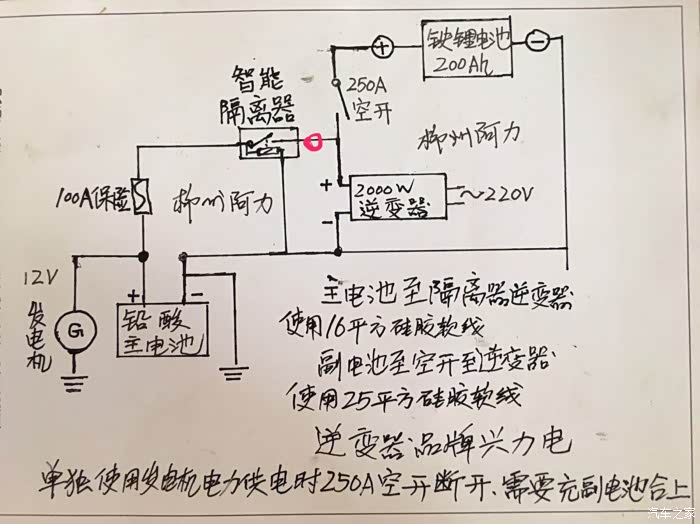 铁锂电池
200Ah
+
-
250A
空开
智能
隔离器
柳州阿力
100A保险
柳州阿力
+
-
2000W
逆变器
~220V
12V
发电机
G
+
-
铅酸
主电池
主电池至隔离器逆变器
使用16平方硅胶软线
副电池至空开至逆变器
使用25平方硅胶软线
逆变器品牌兴力电
单独使用发电机电力供电时250A空开断开、需要充副电池合上
汽车之家